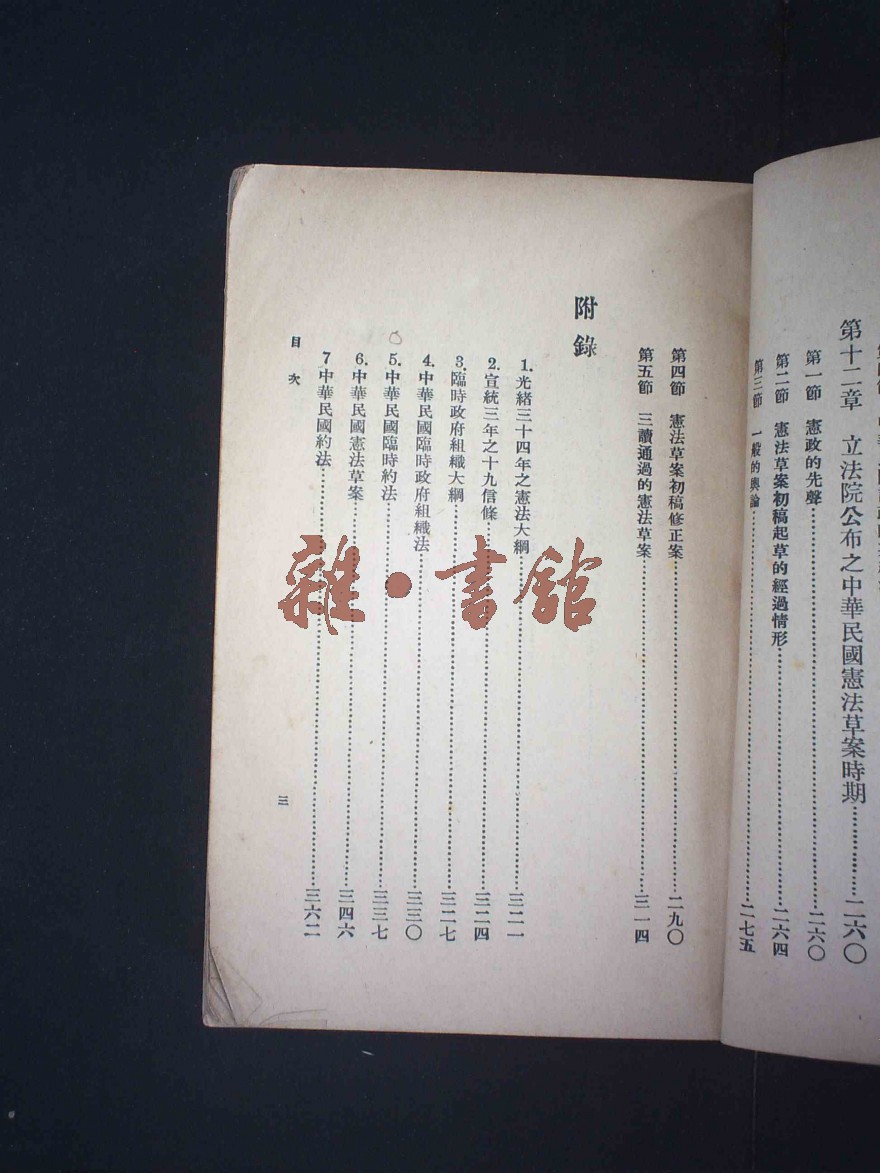 第十二章 立法院公布之中華民國憲法草案時期……二六〇
第一節 憲政的先聲……二六〇
第二節 憲法草案初稿起草的經過情形……二六四
第三節 一般的輿論……二七五
第四節 憲法草案初稿修正案……二九〇
第五節 三讀通過的憲法草案……三一四
附錄
1.光緒三十四年之憲法大綱……三二一
2.宣統三年之十九信條……三二四
3.臨時政府組織大綱……三二七
4.中華民國臨時政府組織法……三三〇
5.中華民國臨時約法……三三七
6.中華民國憲法草案……三四六
7中華民國約法……三六二
目次
三
雜·書館